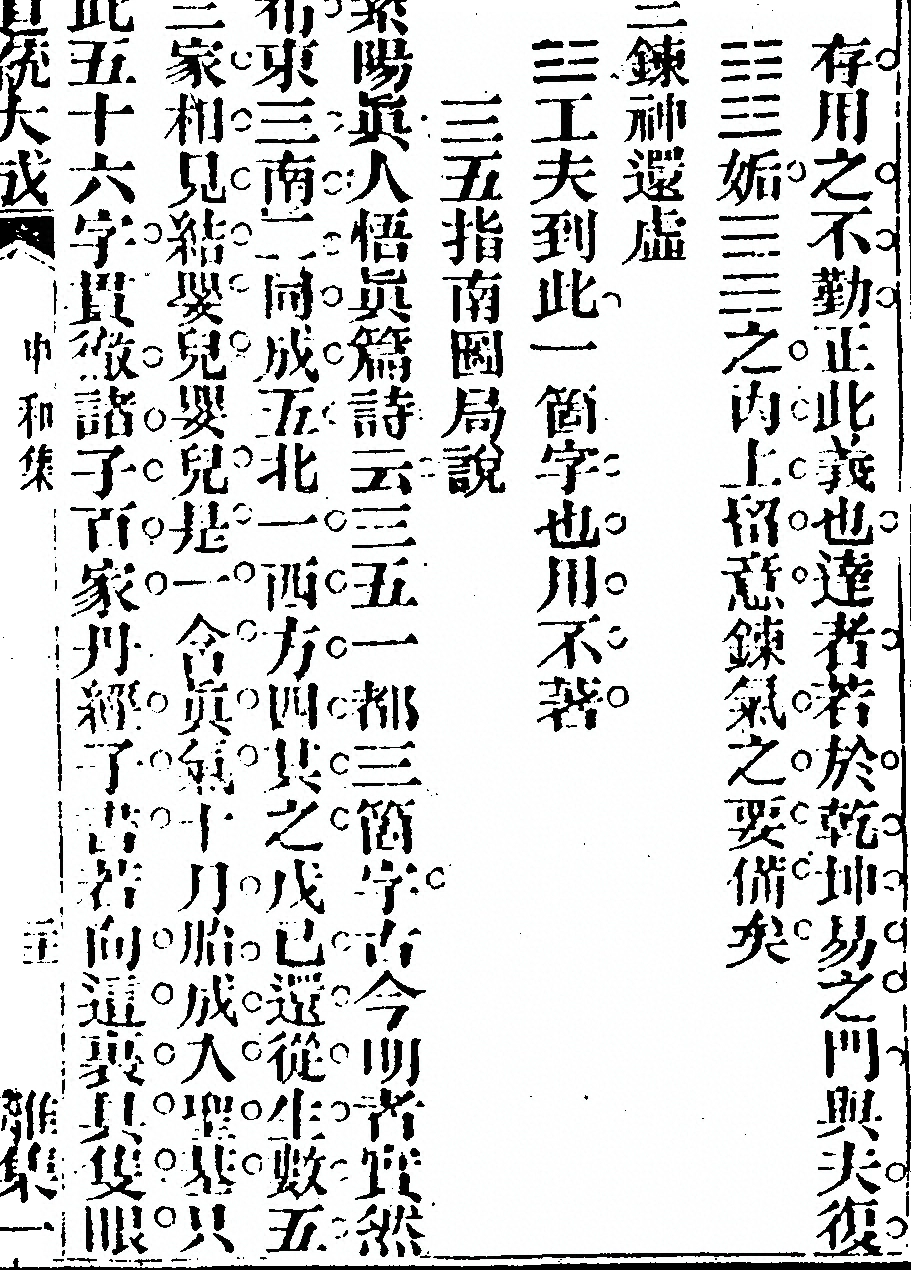 存用之不勤正此義也達者若於乾坤易之門與夫復
䷗姤䷫之內上留意鍊氣之要備矣
三鍊神還虛
工夫到此一箇字也用不著
三五指南圖局說
紫陽眞人悟眞篇詩云三五一都三箇字古今明者實然
希東三南二同成五北一西方四共之戊己還從生數五
三家相見結嬰兒嬰兒是一含眞氣十月胎成入聖基只
此五十六字貫徹諸子百家丹經子書若向這裏具隻眼
道統大成 中和集 雜集一